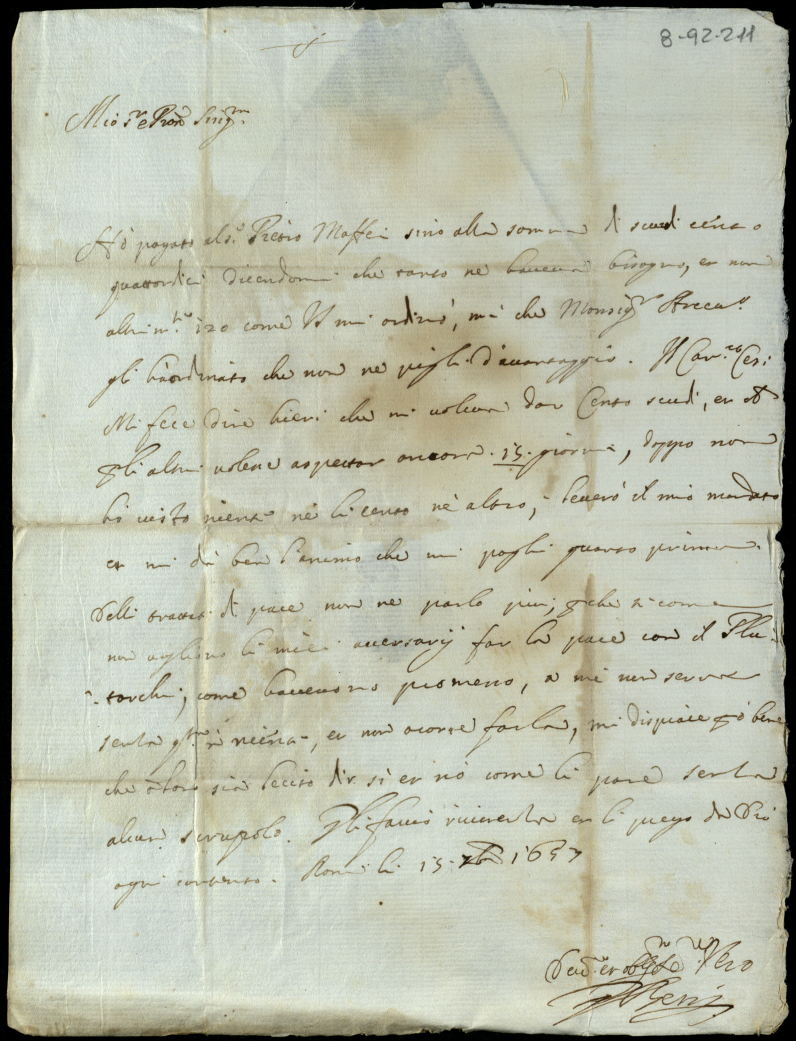 8-92-211
Mio Sr e Pron Singmo
Hò pagato al Sr Pietro Maffei sino alla somma di scudi cento
quattordici dicendomi che tanto ne haveva bisogno, et non
altrimti 120 come VS mi ordinò, mà che Monsigr
gli hà ordinato che non ne pigli d'avantaggio. Il Cavre Cesi
Mi fece dire hieri che mi voleva dar Cento scudi, et
gli altri volere aspettar ancora 15 giorni, doppo non
hò visto niente nè li cento nè altro, leverò il mio mandato
et mi dà ben l'animo che mi paghi quanto prima.
Delli trattati di pace non ne parlo più, perche si come
non vogliono li miei aversarij far la pace con il Plu-
tarchi, come havevono promesso, a me non serve
senza questa è niente, et non ocorre farla, mi dispiace però bene
che à loro sia lecito dir si et nò come li pare senza
alcun scrupolo. Gli faccio riverenza et li prego da Dio
ogni contento. Roma li 15 7bre 1657
Devmo et Oblgmo Sre Vero